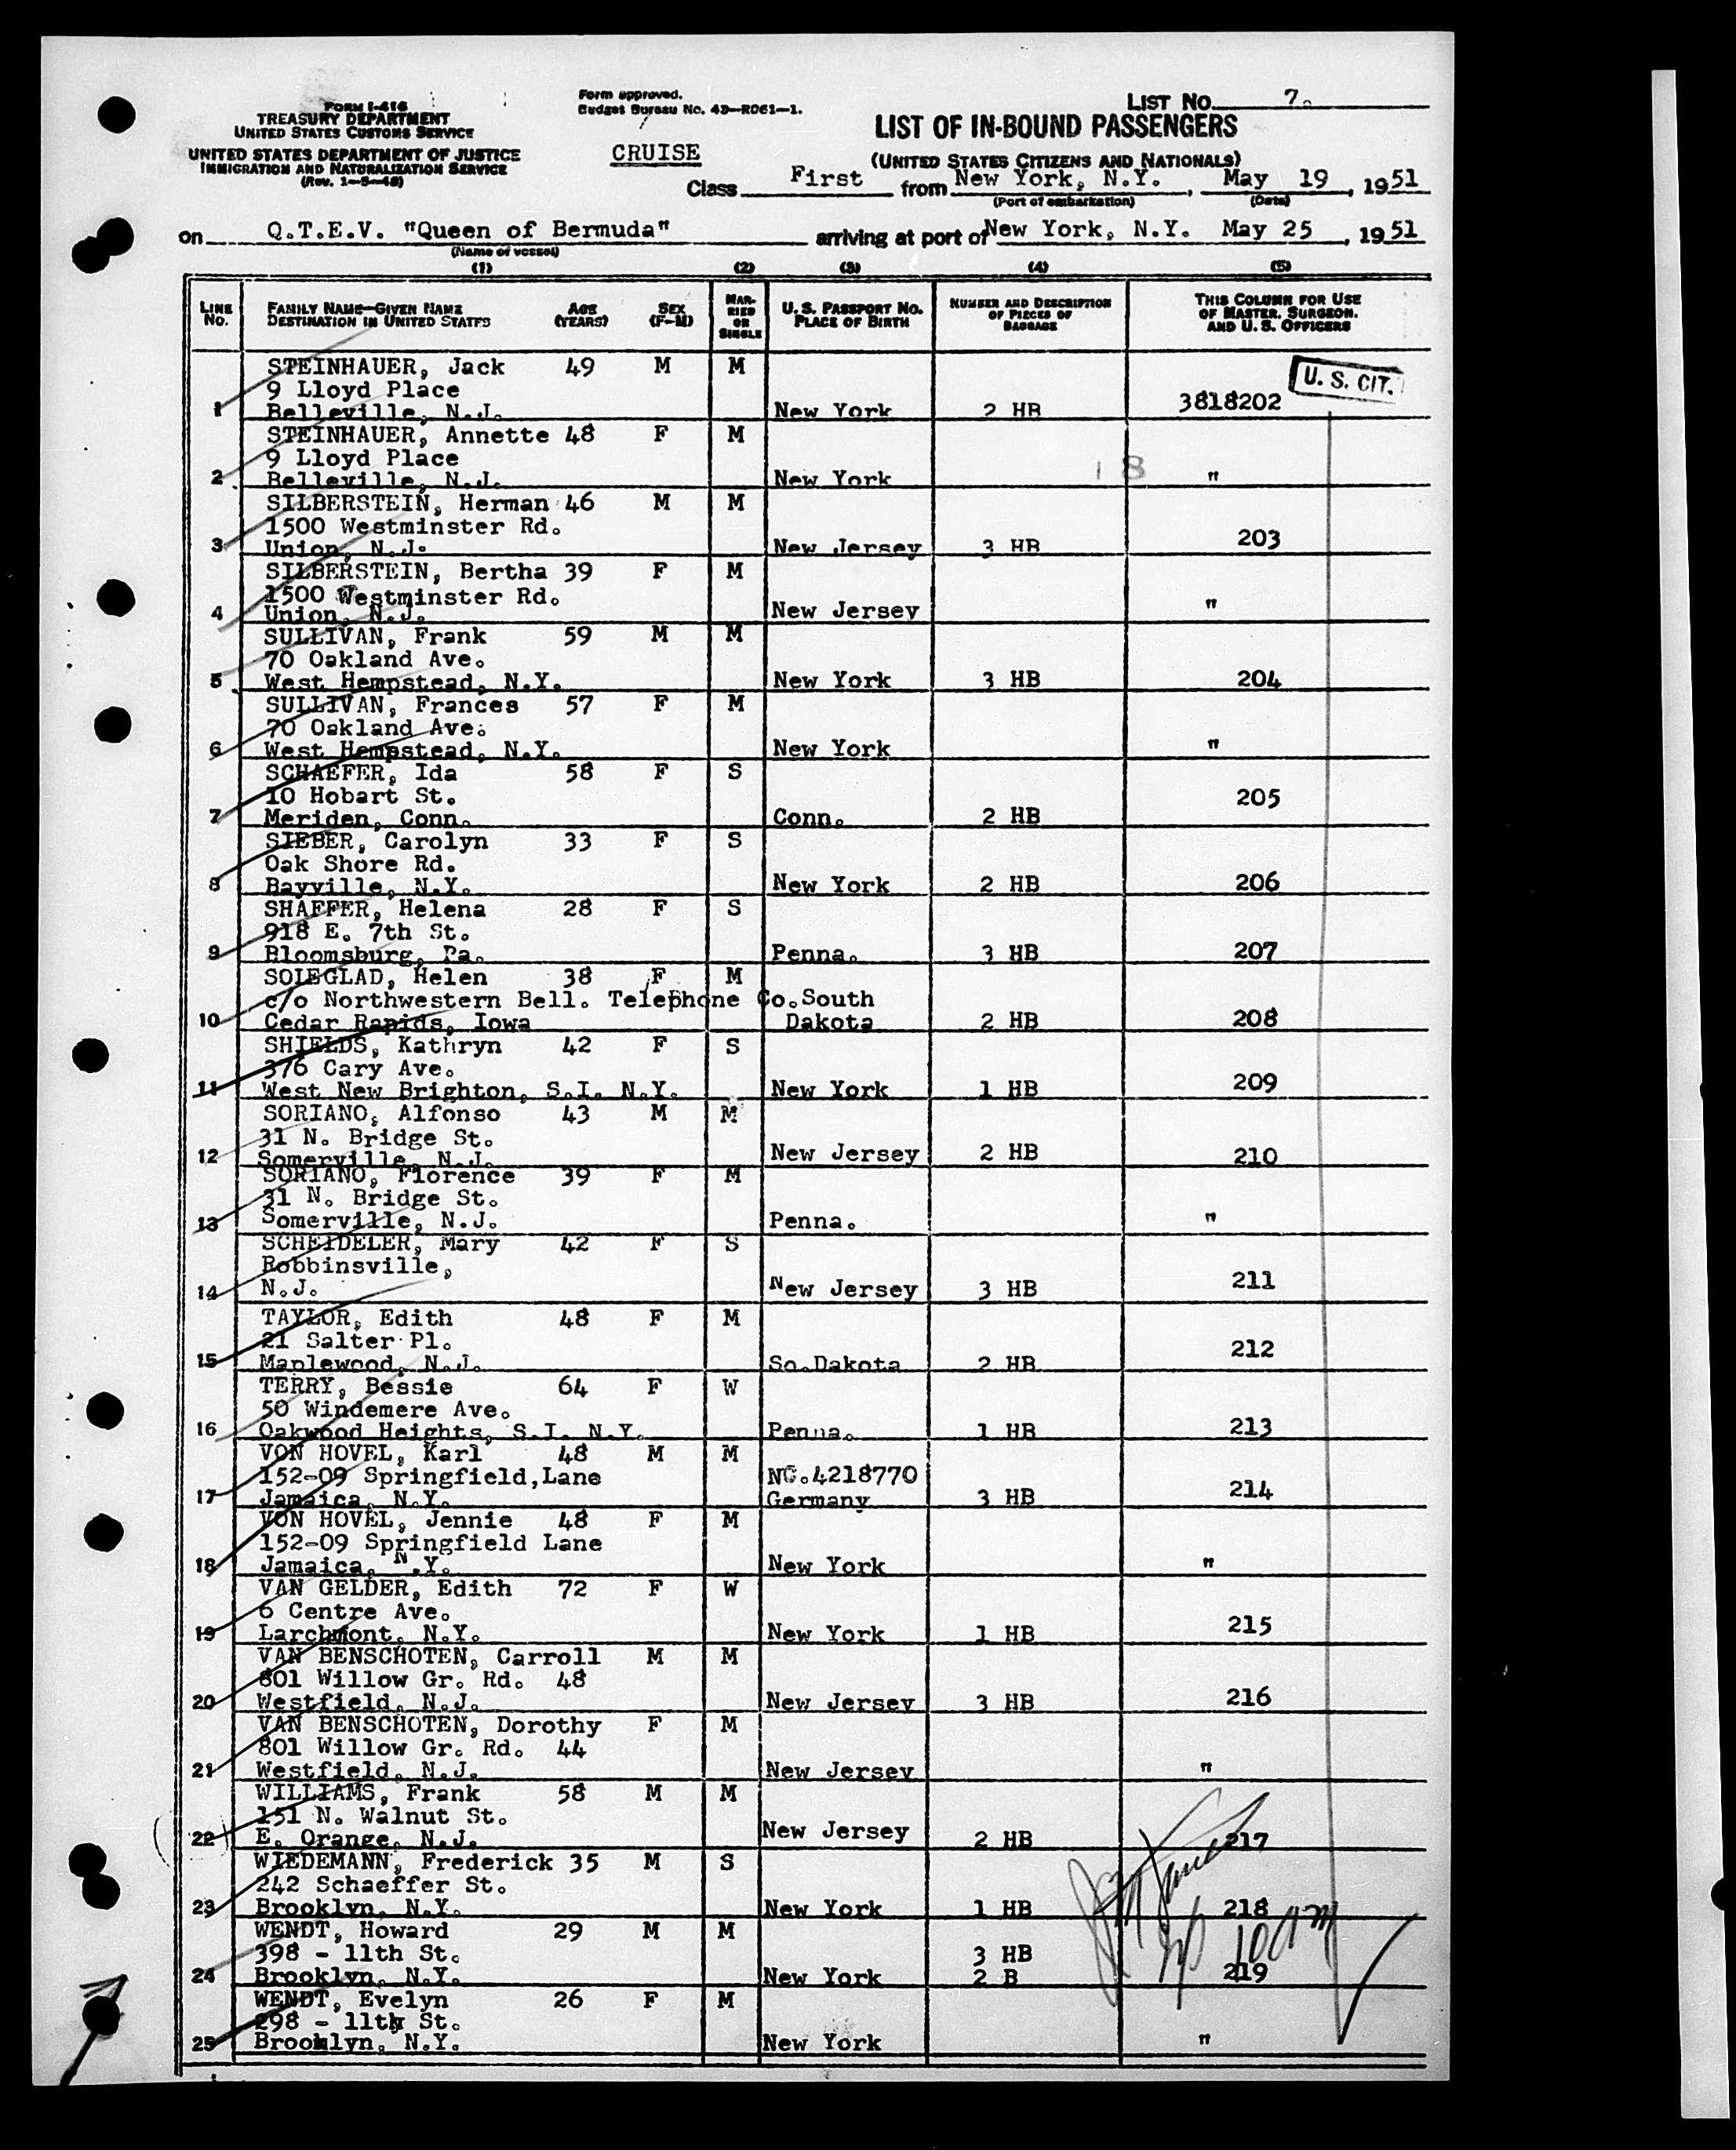 FORM I-416
TREASURY DEPARTMENT
UNITED STATES CUSTOMS SERVICE
UNITED STATES DEPARTMENT OF JUSTICE
IMMIGRATION AND NATURALIZATION SERVICE
(Rev. 1-5-48)
Form approved.
Budget Bureau No. 43-R061-1.
CRUISE
LIST NO. 7.
LIST OF IN-BOUND PASSENGERS
(UNITED STATES CITIZENS AND NATIONALS)
Class First from New York, N.Y., May 19, 1951
(Port of embarkation) (Date)
on Q.T.E.V. "Queen of Bermuda" arriving at port of New York, N.Y. May 25, 1951
(Name of vessel)
(1) (2) (3) (4) (5)
LINE NO.
FAMILY NAME—GIVEN NAME
DESTINATION IN UNITED STATES
AGE (YEARS)
SEX (F-M)
MARRIED OR SINGLE
U.S. PASSPORT NO.
PLACE OF BIRTH
NUMBER AND DESCRIPTION OF PIECES OF BAGGAGE
THIS COLUMN FOR USE OF MASTER, SURGEON, AND U. S. OFFICERS
STEINHAUER, Jack 49 M M U. S. CIT.
9 Lloyd Place
1 Belleville, N.J. New York 2 HB 3818202
STEINHAUER, Annette 48 F M
9 Lloyd Place 18
2 Belleville, N.J. New York "
SILBERSTEIN, Herman 46 M M
1500 Westminster Rd.
3 Union, N.J. New Jersey 3 HB 203
SILBERSTEIN, Bertha 39 F M
1500 Westminster Rd.
4 Union, N.J. New Jersey "
SULLIVAN, Frank 59 M M
70 Oakland Ave.
5 West Hempstead, N.Y. New York 3 HB 204
SULLIVAN, Frances 57 F M
70 Oakland Ave.
6 West Hempstead, N.Y. New York "
SCHAEFER, Ida 58 F S
10 Hobart St. 205
7 Meriden, Conn. Conn. 2 HB
SIEBER, Carolyn 33 F S
Oak Shore Rd.
8 Bayville, N.Y. New York 2 HB 206
SHAFFER, Helena 28 F S
918 E. 7th St.
9 Bloomsburg, Pa. Penna. 3 HB 207
SOLEGLAD, Helen 38 F M
c/o Northwestern Bell. Telephone Co. South
10 Cedar Rapids, Iowa Dakota 2 HB 208
SHIELDS, Kathryn 42 F S
376 Cary Ave.
11 West New Brighton, S.I. N.Y. New York 1 HB 209
SORIANO, Alfonso 43 M M
31 N. Bridge St.
12 Somerville, N.J. New Jersey 2 HB 210
SORIANO, Florence 39 F M
31 N. Bridge St.
13 Somerville, N.J. Penna. "
SCHEIDELER, Mary 42 F S
Robbinsville,
14 N.J. New Jersey 3 HB 211
TAYLOR, Edith 48 F M
21 Salter Pl. 212
15 Maplewood, N.J. So.Dakota 2 HB
TERRY, Bessie 64 F W
50 Windemere Ave.
16 Oakwood Heights, S.I. N.Y. Penna. 1 HB 213
VON HOVEL, Karl 48 M M
152-09 Springfield,Lane NO.4218770
17 Jamaica, N.Y. Germany 3 HB 214
VON HOVEL, Jennie 48 F M
152-09 Springfield Lane
18 Jamaica, N.Y. New York "
VAN GELDER, Edith 72 F W
6 Centre Ave.
19 Larchmont, N.Y. New York 1 HB 215
VAN BENSCHOTEN, Carroll M M
801 Willow Gr. Rd. 48
20 Westfield, N.J. New Jersey 3 HB 216
VAN BENSCHOTEN, Dorothy F M
801 Willow Gr. Rd. 44
21 Westfield, N.J. New Jersey "
WILLIAMS, Frank 58 M M
151 N. Walnut St.
22 E. Orange, N.J. New Jersey 2 HB 217
WIEDEMANN, Frederick 35 M S
242 Schaeffer St.
23 Brooklyn, N.Y. New York 1 HB 218
WENDT, Howard 29 M M
398 - 11th St. 3 HB
24 Brooklyn, N.Y. New York 2 B 219
WENDT, Evelyn 26 F M
298 - 11th St.
25 Brooklyn, N.Y. New York "